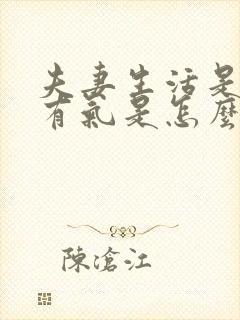 夫妻生活是
有氣是怎麼
陳滄江